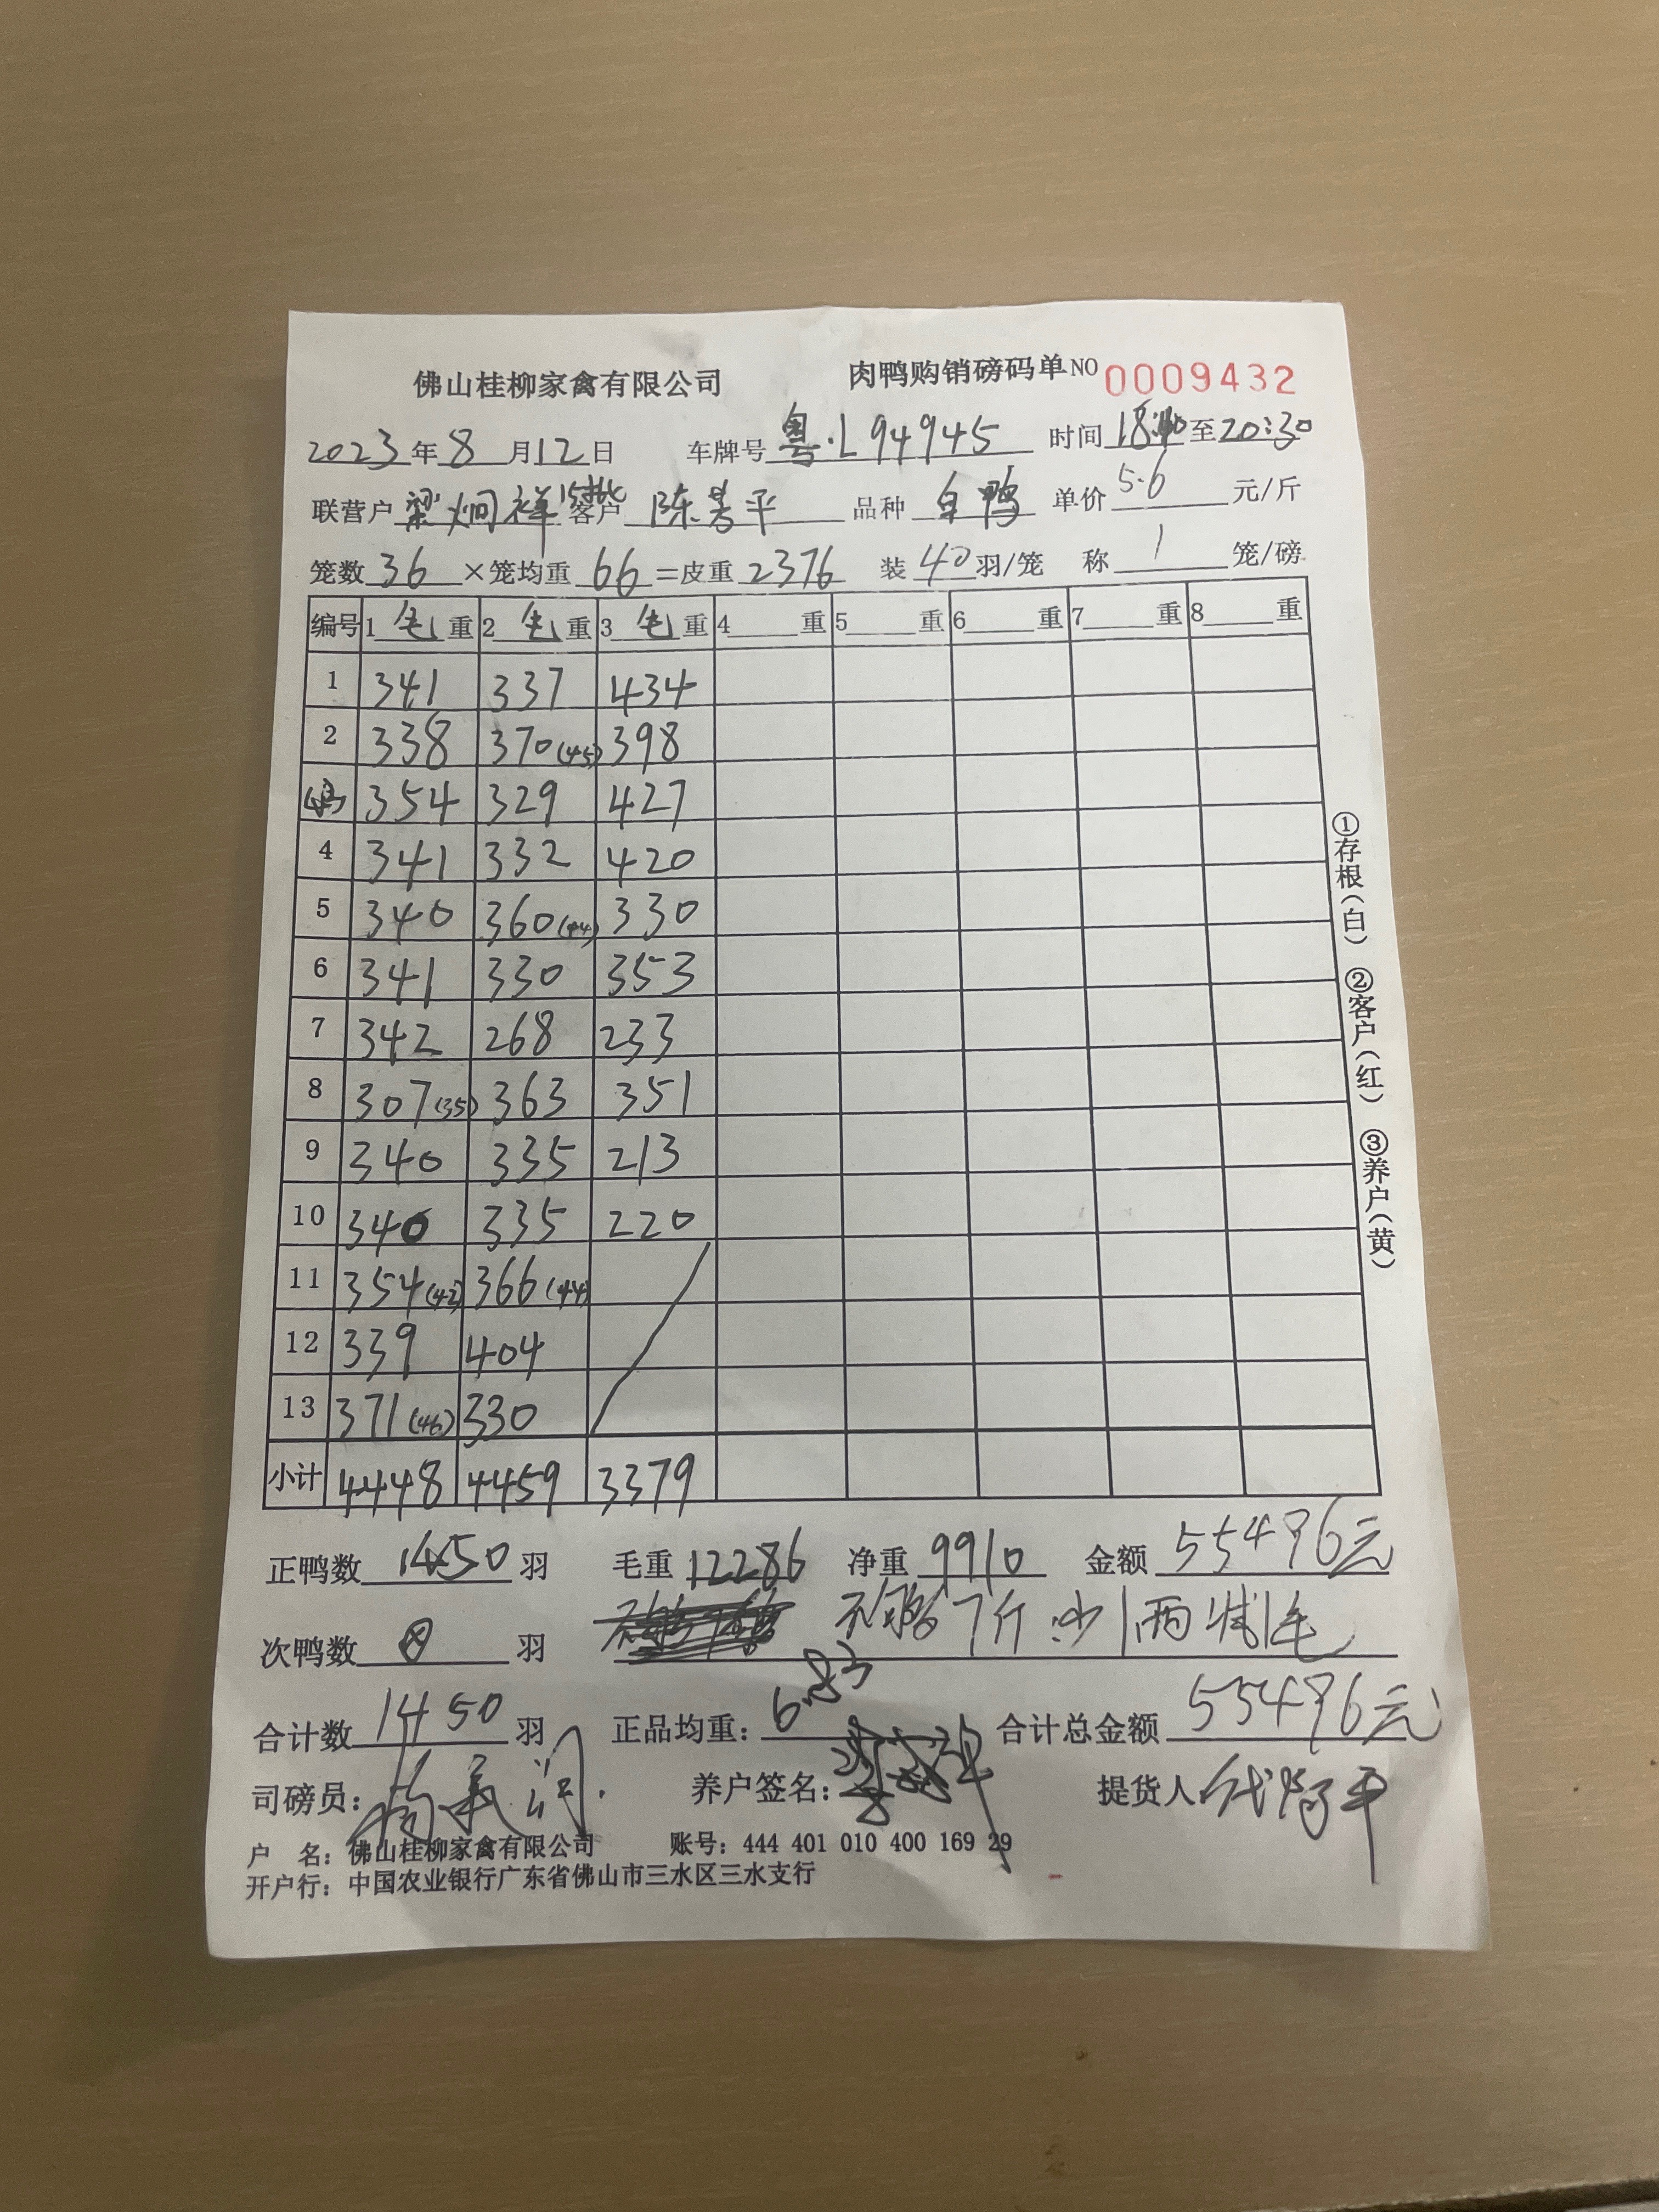 佛山桂柳家禽有限公司 肉鸭购销磅码单NO 0009432
2023年8月12日 车牌号粤·L94945 时间18:40至20:30
联营户梁炯祥15批客户陈芳平 品种白鸭 单价5.6元/斤
笼数36×笼均重66=皮重2376 装40羽/笼 称1笼/磅
编号 1毛重 2毛重 3毛重 4重 5重 6重 7重 8重
1 341 337 434
2 338 370(45) 398
(43) 354 329 427
4 341 332 420
5 340 360(44) 330
6 341 330 353
7 342 268 233
8 307(35) 363 351
9 340 335 213
10 340 335 220
11 354(42) 366(44)
12 339 404
13 371(46) 330
小计 4448 4459 3379
正鸭数1450羽 毛重12286 净重9910 金额55496元
次鸭数0羽 7斤 少1两减1毛
合计数1450羽 正品均重:6.83 合计总金额55496元
司磅员: 养户签名: 提货人
户 名:佛山桂柳家禽有限公司 账号:444 401 010 400 169 29
开户行:中国农业银行广东省佛山市三水区三水支行
①存根(白) ②客户(红) ③养户(黄)